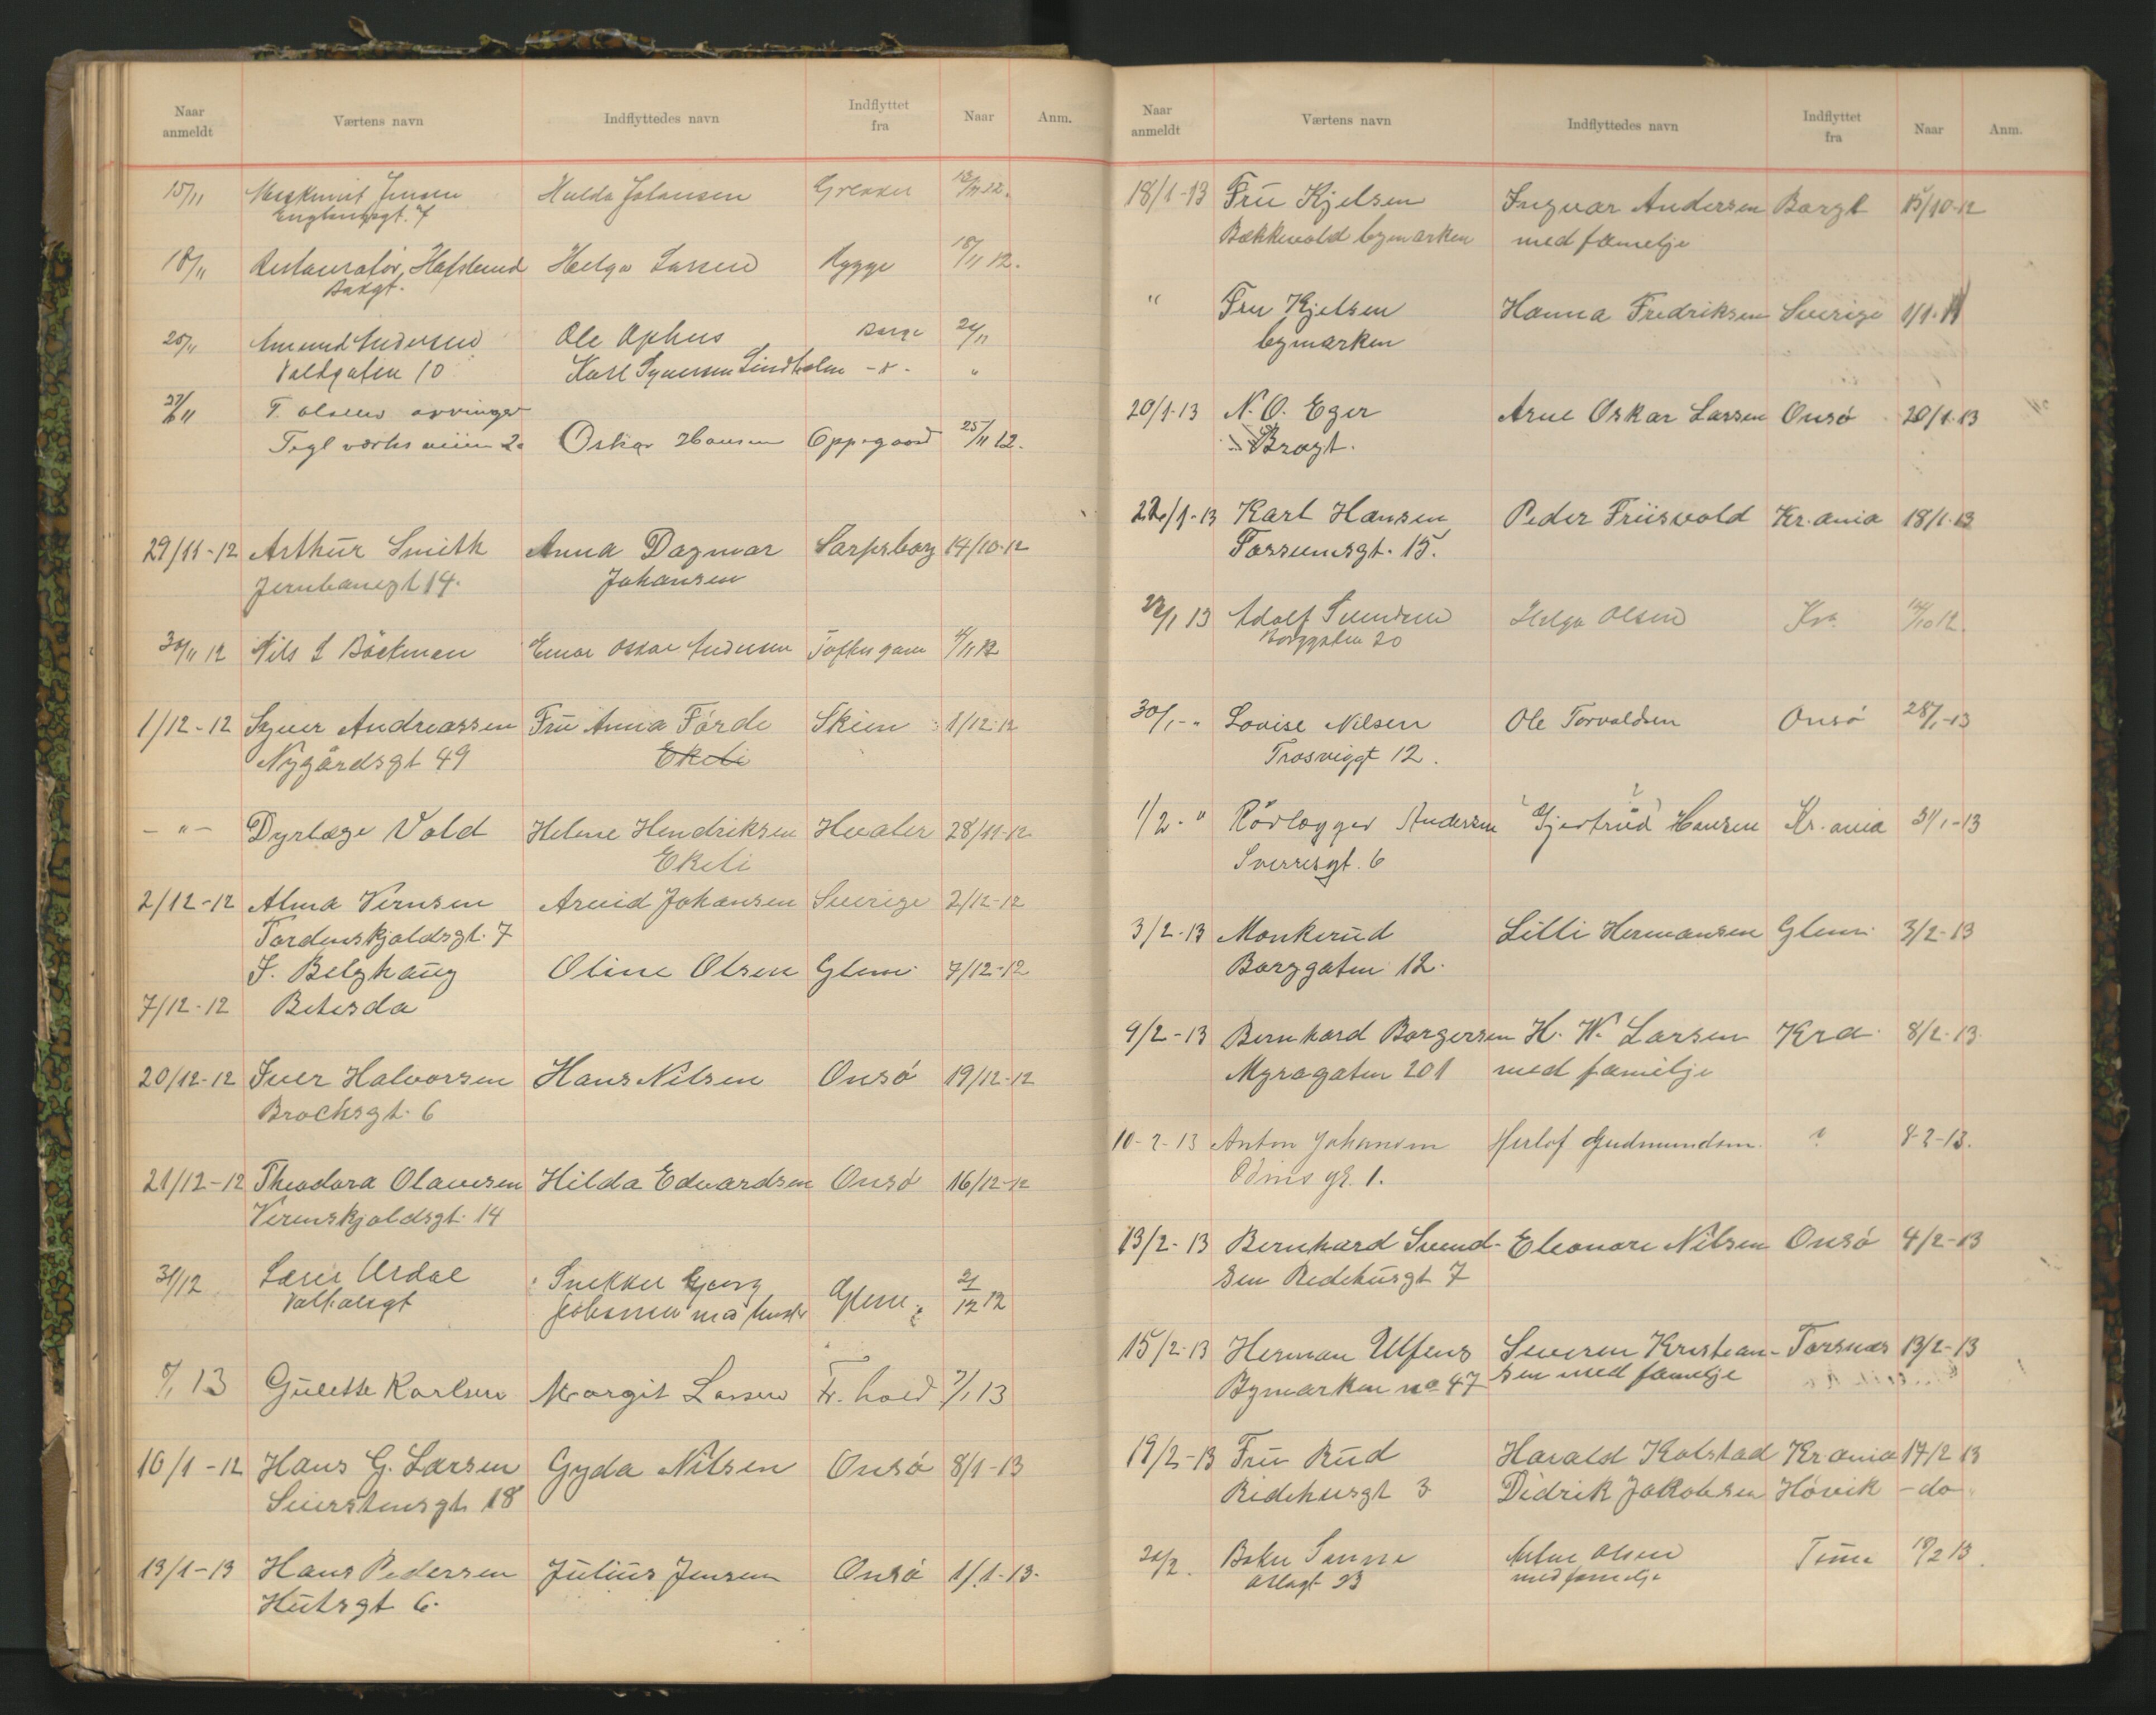 Naar anmeldt Værtens navn Indflyttedes navn Indflyttet fra Naar Anm.
15/11 Jensen Hulda Johansen 12.
18/11 Restauratør, Hafslund Helga Larsen Rygge 18/11 12.
Amund Andersen Ole Ophus Borge
Voldgaten 10 Karl Lindholm "
27/11 T. Olsens arvinger
Teglværksveien 2a Oskar Hansen Oppegaard 25/11 12.
29/11-12 Arthur Smith Anna Dagmar Sarpsborg 14/10-12
Jernbanegt 14. Johansen
30/11 12 Nils Bäckman Einar Oskar Andersen 12
1/12-12 Syver Andreassen Fru Anna Förde Skien 1/12-12
Nygårdsgt 49 Ekeli
- " - Dyrlæge Vold Helene Hendriksen Hvaler 28/11-12
Ekeli
2/12-12 Alma Vernsen Arvid Johansen Sverige 2/12-12
Tordenskjoldsgt. 7
J. Belghaug Oline Olsen Glem. 7/12-12
7/12-12 Betesda
20/12-12 Iver Halvorsen Hans Nilsen Onsö 19/12-12
Brochsgt. 6
21/12-12 Theodora Olavesen Hilda Edvardsen Onsö 16/12-12
Verenskjoldsgt. 14
31/12 Urdal Snekker Georg
Johansen med
13 Gulette Karlsen Margit Larsen Fr. hald 7/1 13
10/1-12 Hans G. Larsen Gyda Nilsen Onsö 8/1-13
Seierstensgt. 18
13/1-13 Hans Pedersen Julius Jensen Onsö 1/1-13.
Hutsgt 6.
Naar anmeldt Værtens navn Indflyttedes navn Indflyttet fra Naar Anm.
18/1-13 Fru Kjelsen Ingvar Andersen Borgt 15/10-12
Bækkevold bymarken med familje
" Fru Kjelsen Hanna Fredriksen Sverige
bymarken
20/1-13 N. O. Eger Arne Oskar Larsen Onsö 20/1-13
Brogt.
22/1-13 Karl Hansen Peder Friisvold Kr.ania 18/1-13
Fossumsgt. 15.
13 Adolf Svendsen Helga Olsen Kra.
Borggaten 20
30/1-" Lovise Nilsen Ole Torvaldsen Onsö 28/1-13
Trosviggt 12.
1/2-" Rörlægger Andersen Gjertrud Hansen Kr.ania 31/1-13
Sverresgt. 6
3/2-13 Monkerud Lilli Hermansen Glem. 3/2-13
Borggaten 12.
9/2-13 Bernhard Borgersen H. W. Larsen Kra. 8/2-13
Myragaten 201 med familje
10-2-13 Anton Johansen Herlof Gudmundsen ? 8-2-13.
Odins gt. 1.
13/2-13 Bernhard Svend- Eleonore Nilsen Onsö 4/2-13
sen Ridehusgt 7
15/2-13 Herman Ulfeng Severin Kristian- Torsnæs 13/2-13
Bymarken no 47 sen med familje
19/2-13 Fru Rud Harald Kolstad Kr.ania 17/2 13
Ridehusgt 3 Didrik Jakobsen Hövik - do -
Olsen Tune
med familje